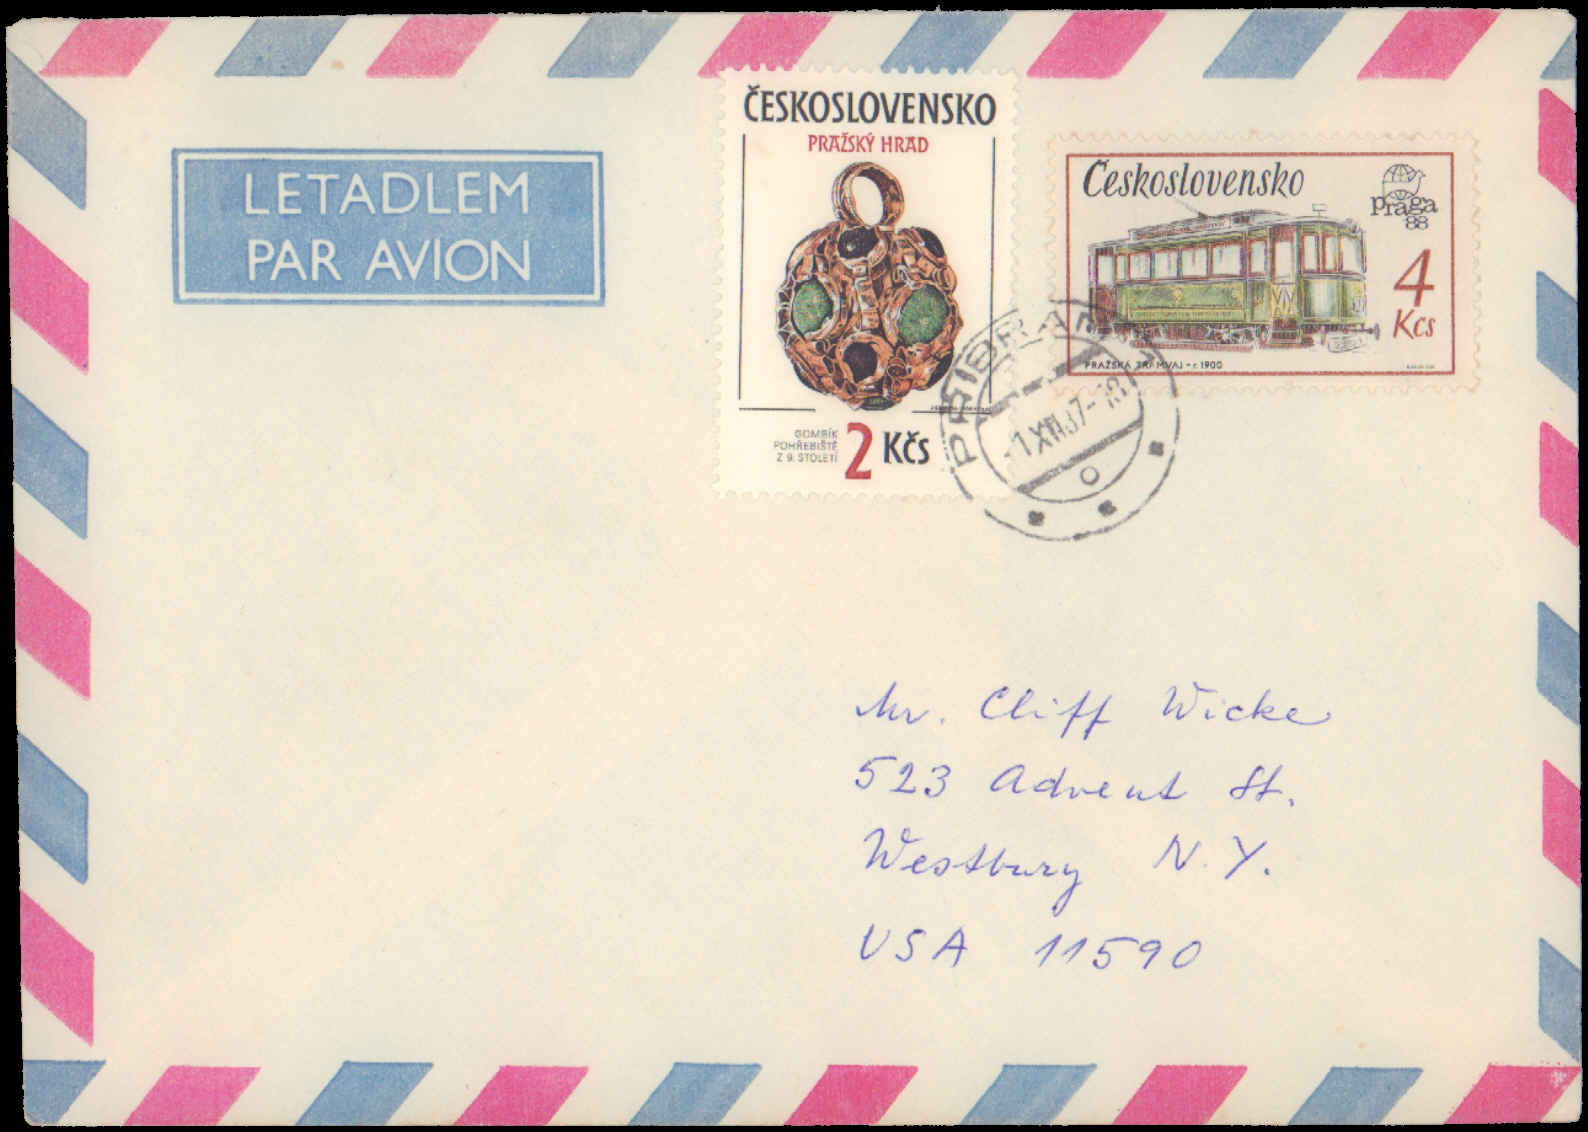 LETADLEM
PAR AVION
ČESKOSLOVENSKO
PRAŽSKÝ HRAD
GOMBÍK
POHŘEBIŠTĚ
Z 9. STOLETÍ
2 Kčs
Československo
praga
88
4
Kčs
PRAŽSKÁ TRAMVAJ - r. 1900
PŘÍBRAM 1
-1.XII.87-18
Mr. Cliff Wicke
523 Advent St.
Westbury N.Y.
USA 11590